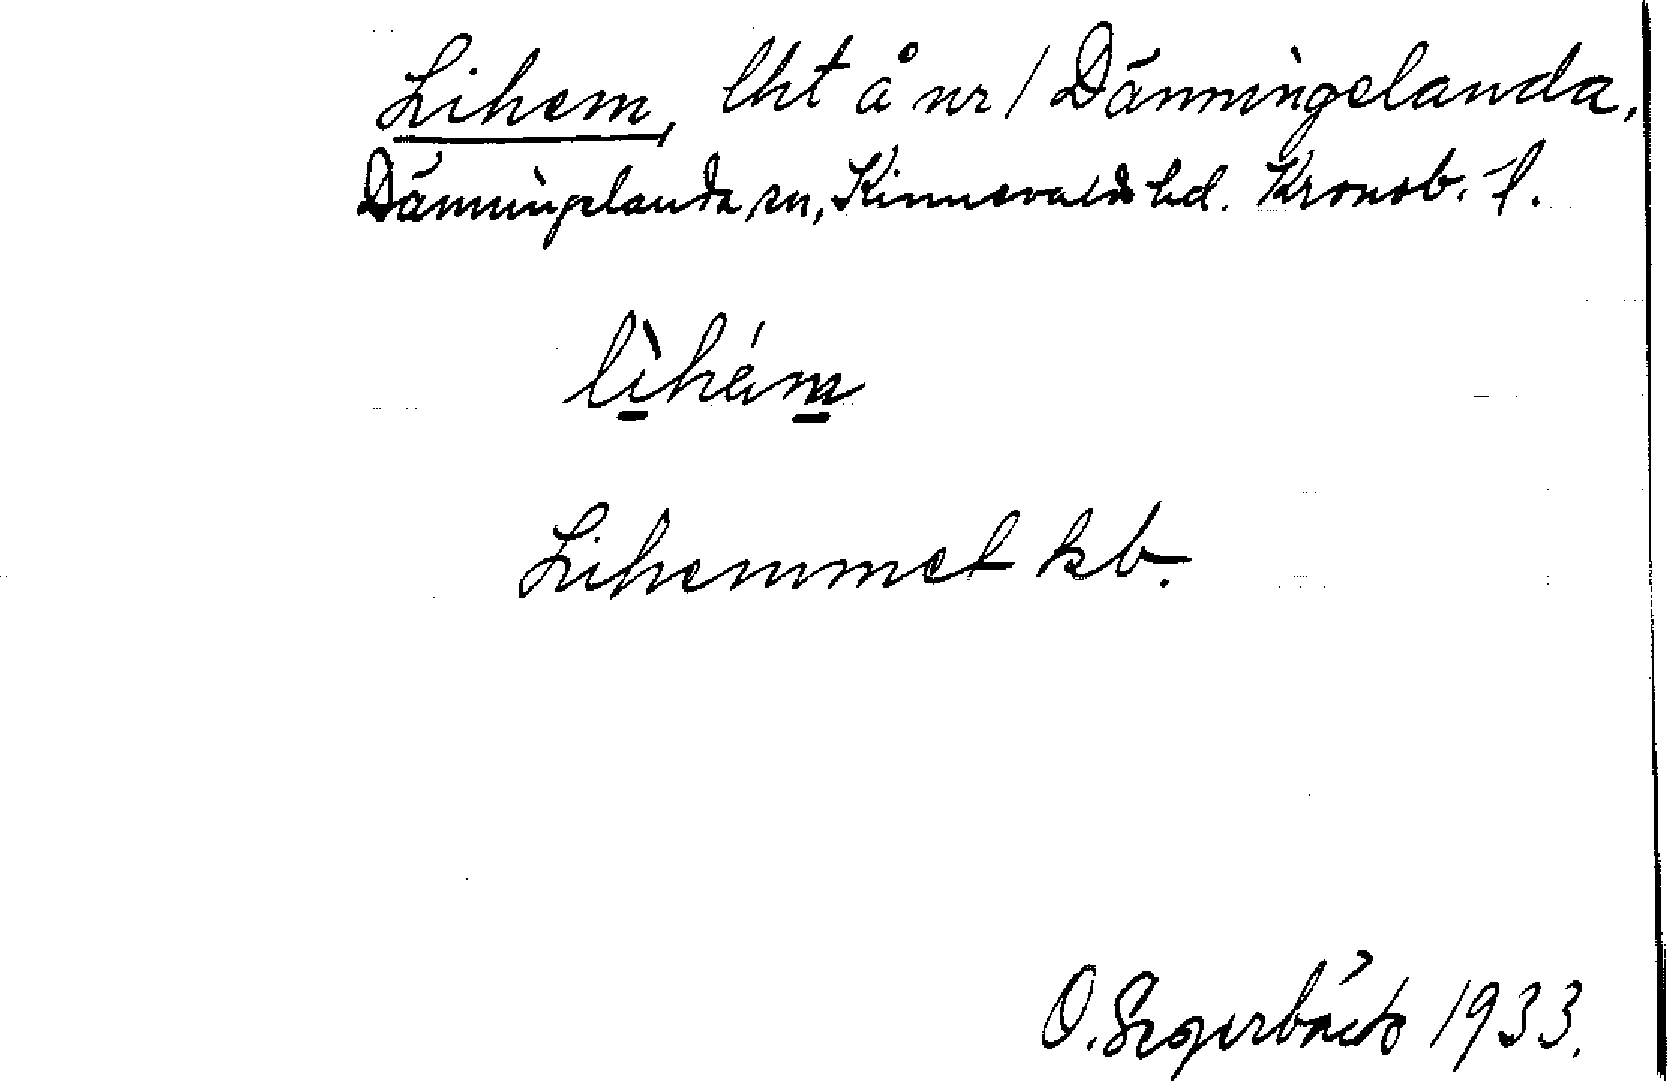 Lihem, lht å nr 1 Dänningelanda,
Dänningelanda sn, Kinnevalds hd. Kronob. l.
lìhǽm
Lihemmet kb.
O. Segerbäck 1933.